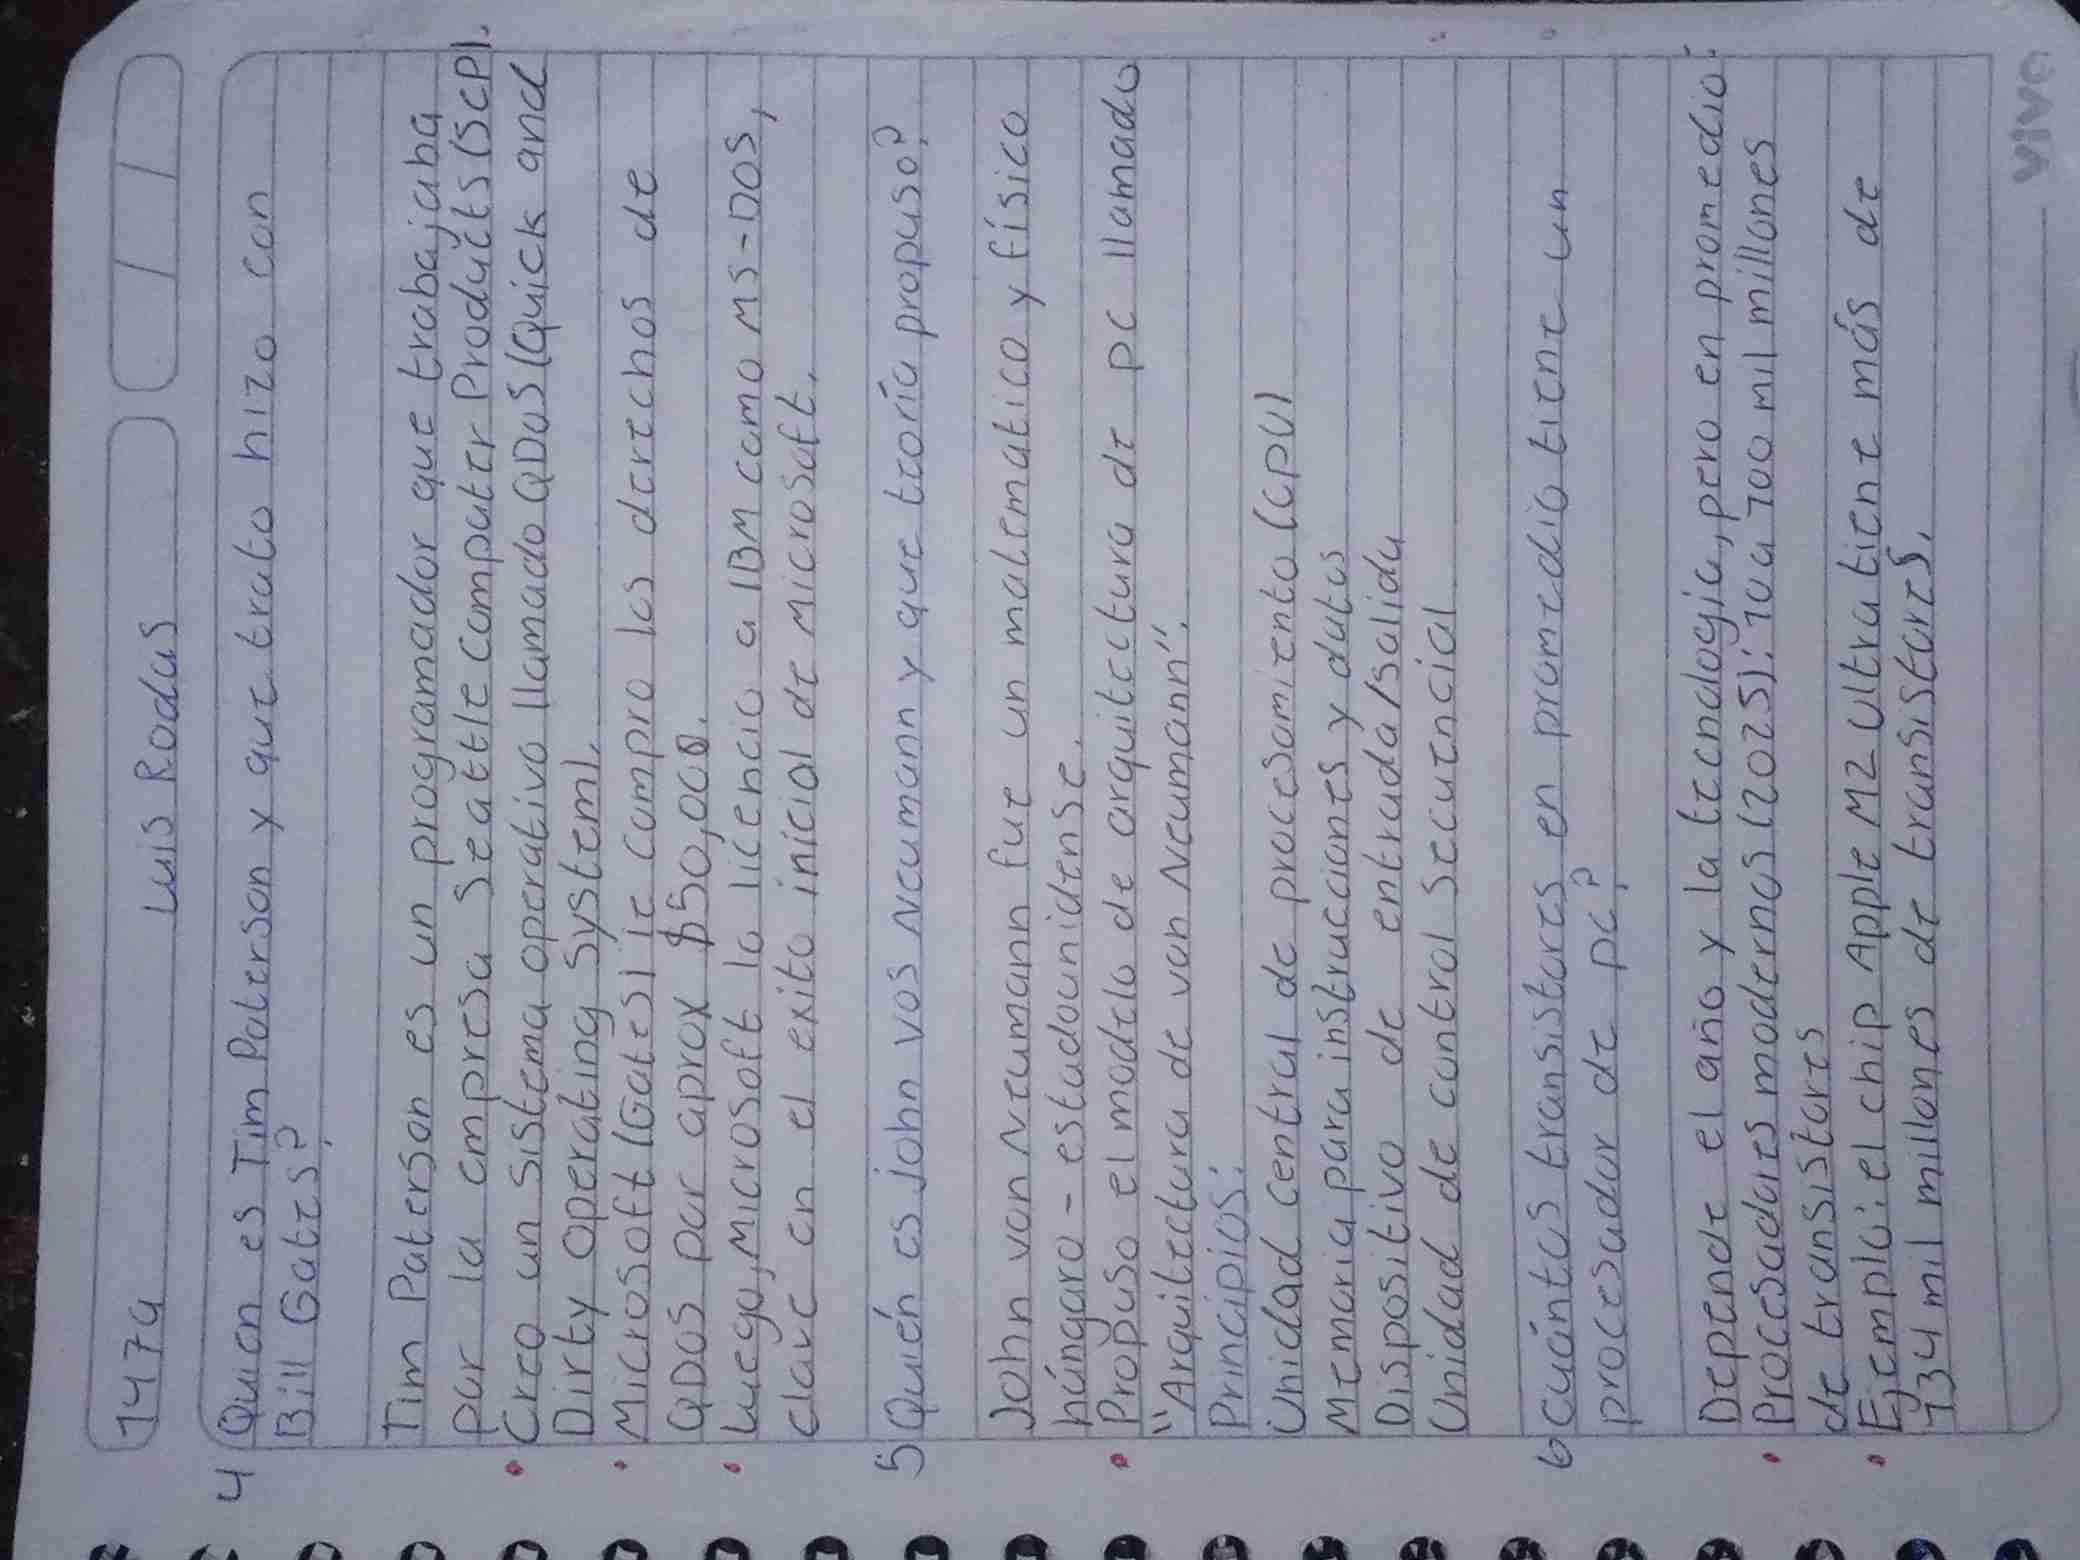 1479
Luis Rodas
4 Quien es Tim Paterson y que trato hizo con
Bill Gates?
Tim Paterson es un programador que trabajaba
por la empresa Seattle Computer Products (SCP).
• Creo un sistema operativo llamado QDOS (Quick and
Dirty Operating System).
• Microsoft (Gates) le compro los derechos de
QDOS por aprox $50,000.
• Luego, Microsoft lo licencio a IBM como MS-DOS,
clave en el exito inicial de Microsoft.
5 Quién es John vos Neumann y que teoría propuso?
John von Neumann fue un matematico y físico
húngaro - estadounidense.
• Propuso el modelo de arquitectura de pc llamado
"Arquitectura de von Neumann".
Principios:
Unidad central de procesamiento (CPU)
Memoria para instrucciones y datos
Dispositivo de entrada/salida
Unidad de control secuencial
6 Cuántos transistores en promedio tiene un
procesador de pc?
Depende el año y la tecnologia, pero en promedio:
• Procesadores modernos (2025): 10 a 100 mil millones
de transistores
• Ejemplo: el chip Apple M2 Ultra tiene más de
134 mil millones de transistores.
vivo